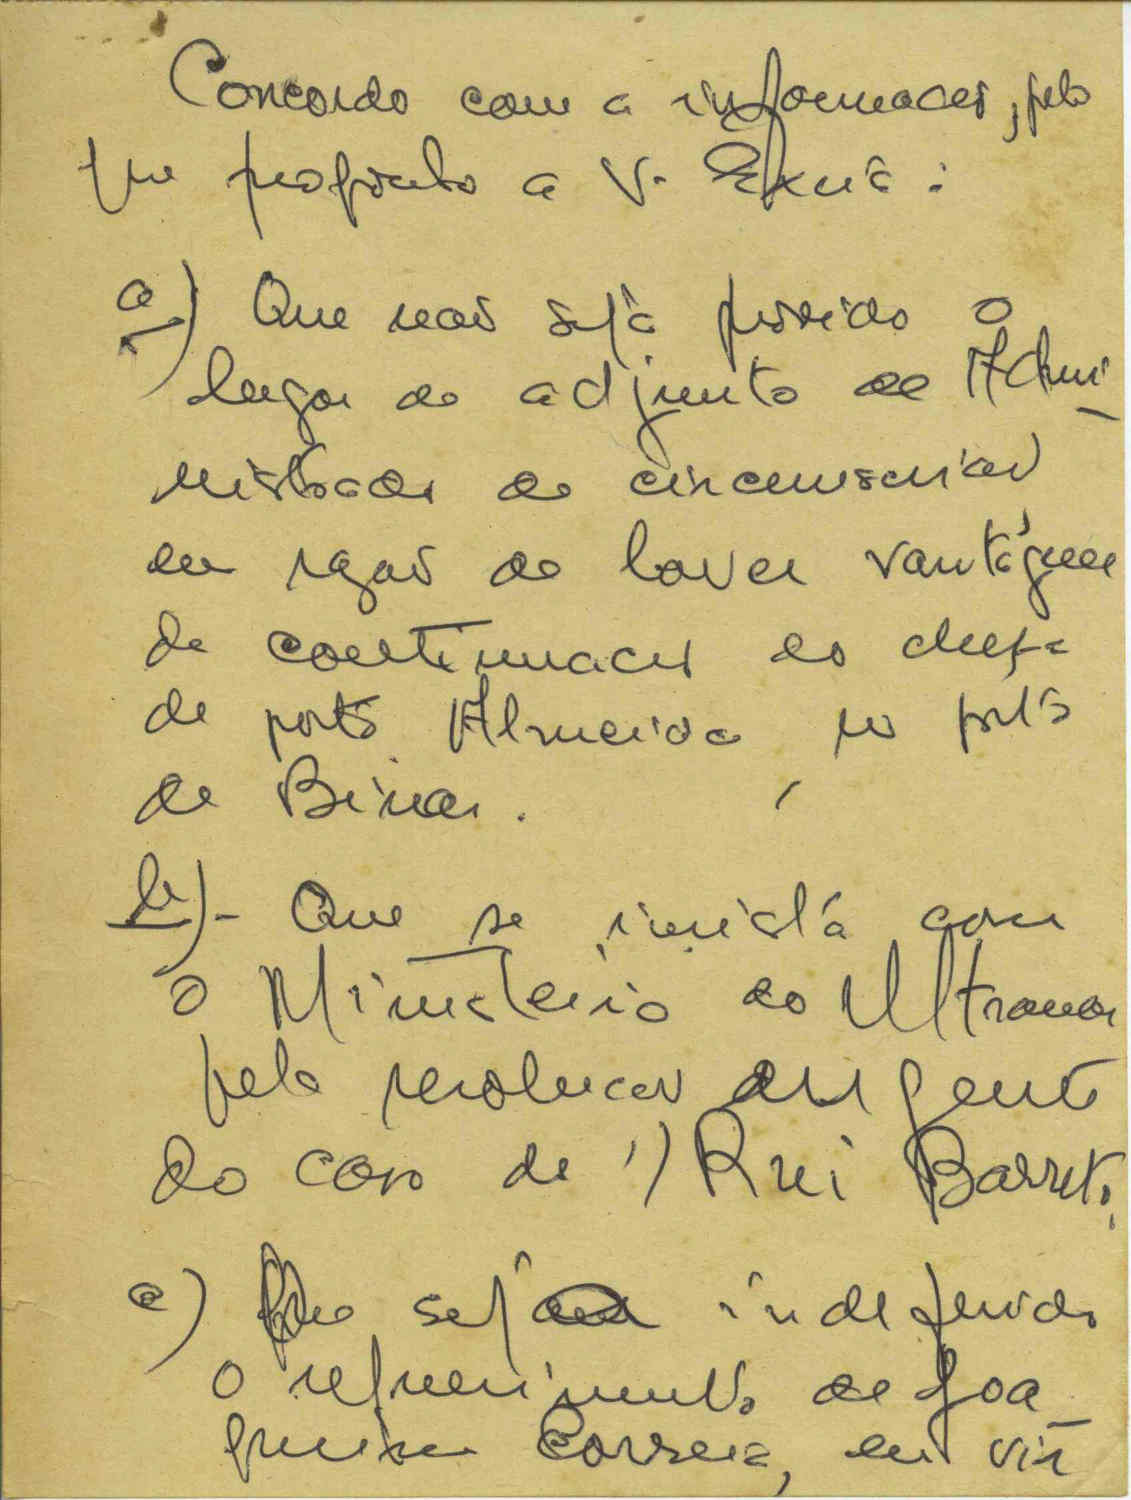 Concordo com a informação, pelo
que proponho a V. Exciá :
a) Que não sejá provido o
lugar de adjunto de Admi
nistrador de circunscrição
em razão de haver vantágem
da continuação do chefe
de posto Almeida, no posto
de Binar.
b)- Que se insistá com
o Ministerio do Ultramar
pela resolução urgente
do caso de Rui Barreto,
c) Que seja indeferido
o requerimento de Joa
quim Correia, em vir